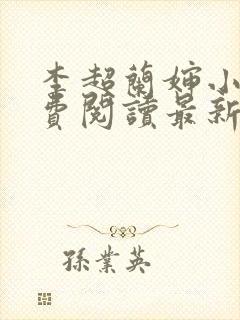 李超蘭嬸小
費閱讀最新
孫業英